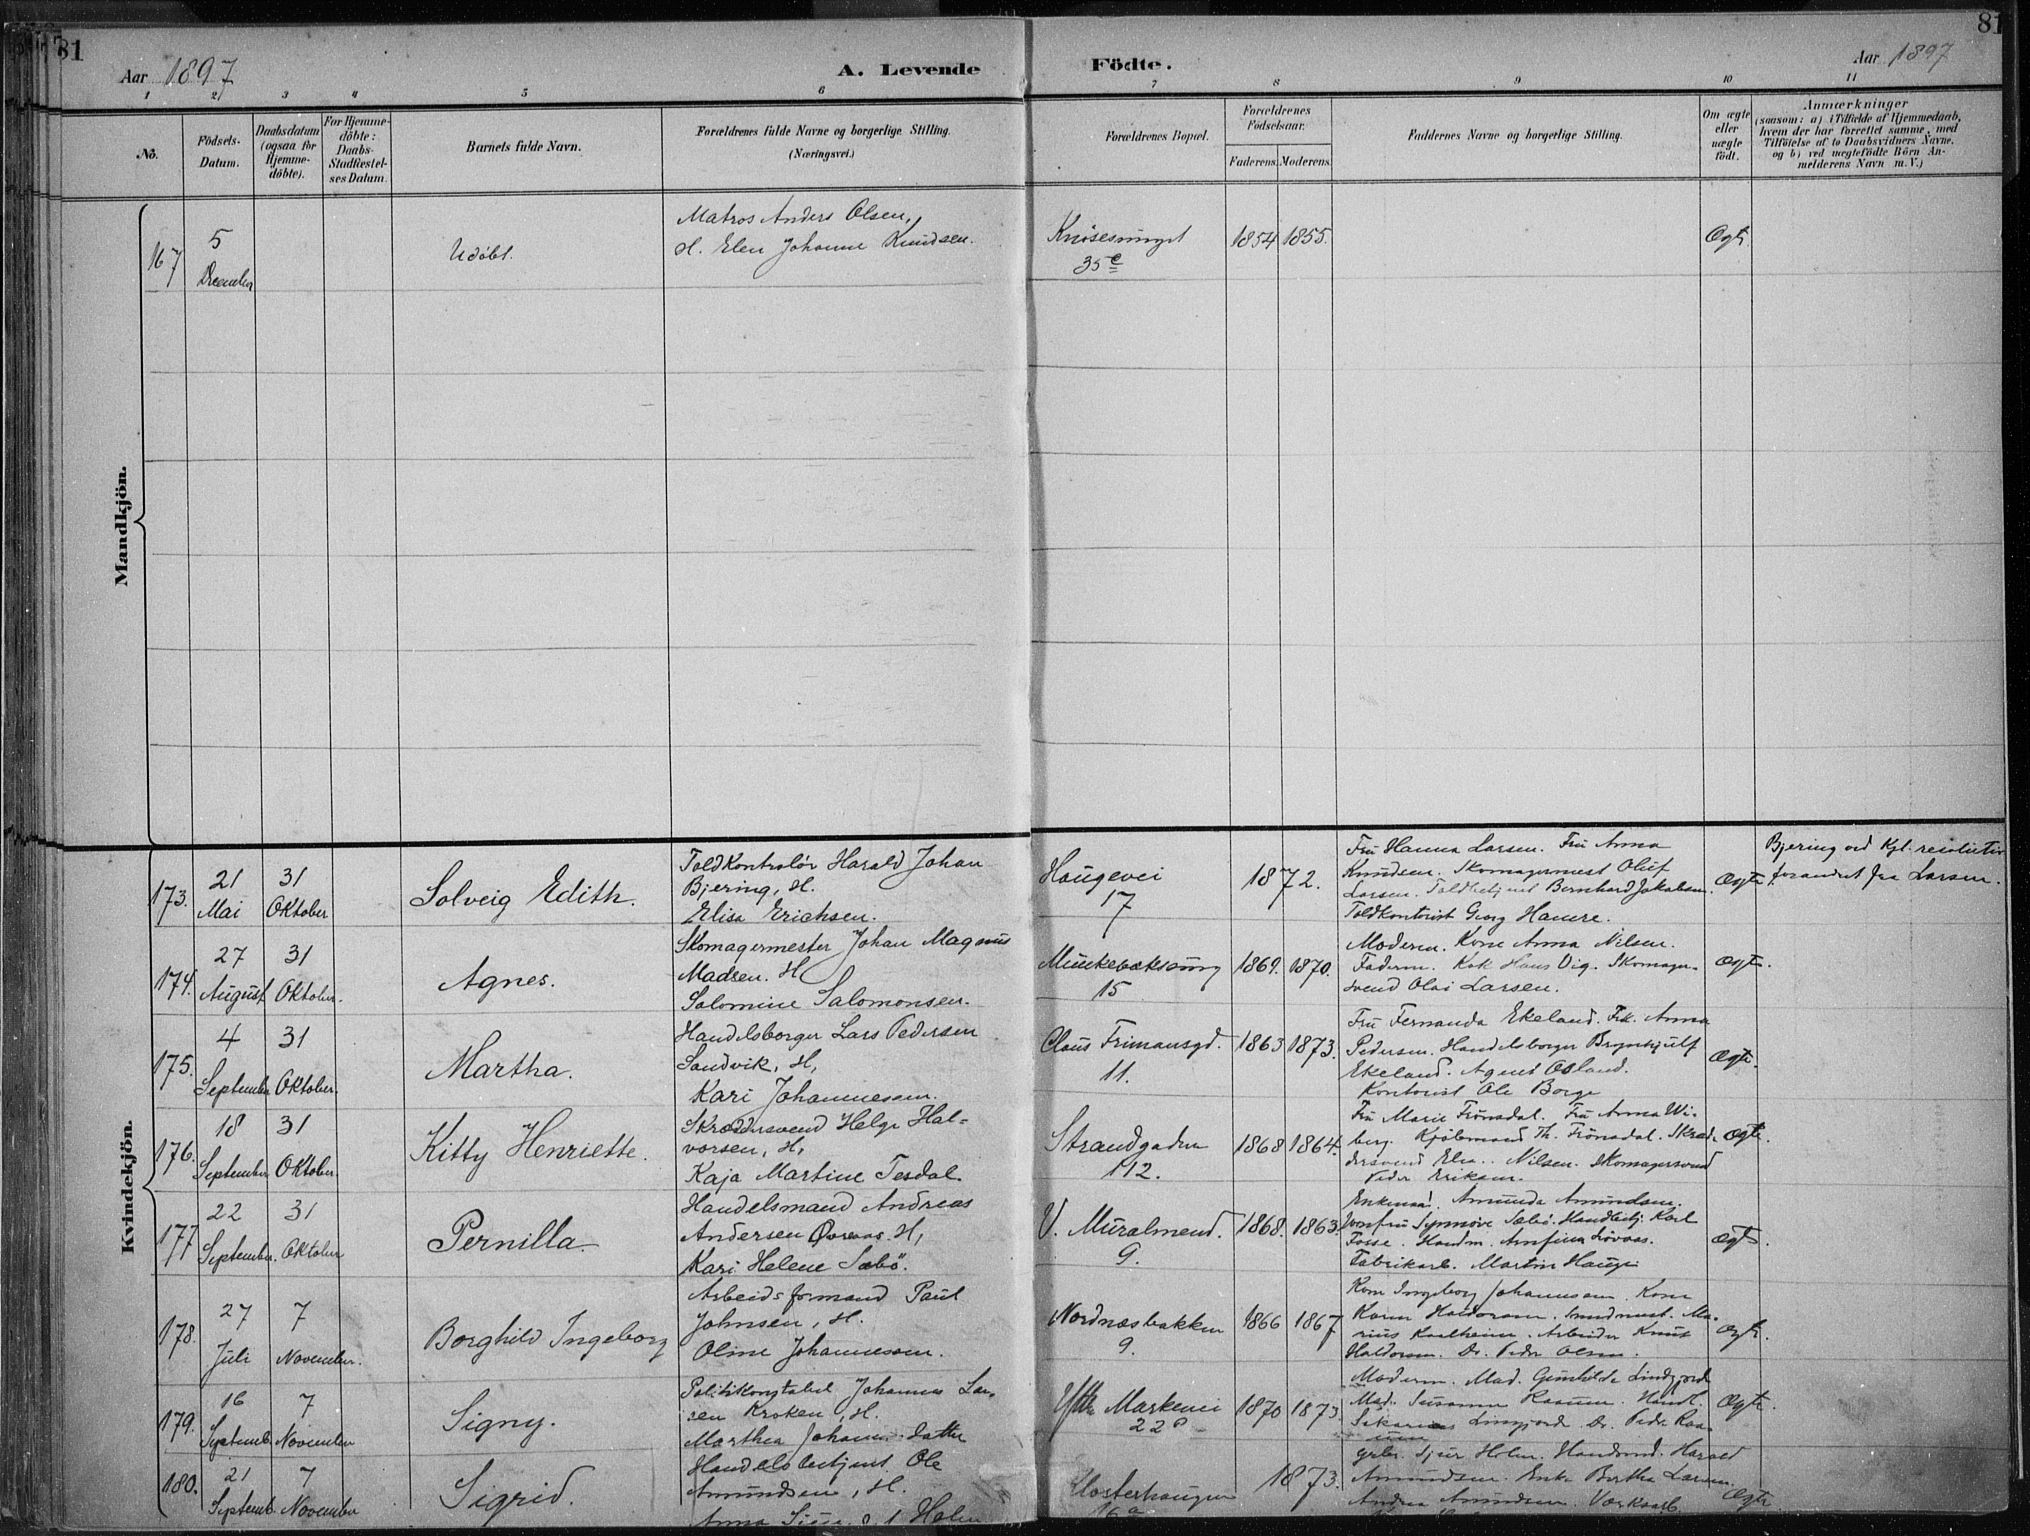 81
Aar 1897
A. Levende
Födte.
Aar 1897
81
1 2 3 4 5 6 7 8 9 10 11
No.
Födsels-
Datum.
Daabsdatum
(ogsaa for
Hjemme-
döbte).
For Hjemme-
döbte:
Daabs-
Stadfæstel-
ses Datum.
Barnets fulde Navn.
Forældrenes fulde Navne og borgerlige Stilling.
(Næringsvei.)
Forældrenes Bopæl.
Forældrenes
Födselsaar.
Faderens. Moderens.
Faddernes Navne og borgerlige Stilling.
Om ægte
eller
uægte
födt.
Anmærkninger
(saasom: a) i Tilfælde af Hjemmedaab,
hvem der har forrettet samme, med
Tilföielse af to Daabsvidners Navne,
og b) ved uægtefödte Börn An-
melderens Navn m. V.)
Mandkjön.
167
5
December
Udöbt.
Matros Anders Olsen,
H. Elen Johanne Knudsen.
Knösesmuget
35 c
1854 1855.
Ægte
Kvindekjön.
173.
21
Mai
31
Oktober
Solveig Edith.
Toldkontrolör Harald Johan
Bjering, H.
Elisa Erichsen.
Haugevei
17
1872.
Fru Hanna Larsen. Fru Anna
Knudsen. Skomagermest Oluf
Larsen. Toldbetjent Bernhard Jakobsen.
Toldkontorist Georg Hamre.
Ægte
Bjering ved Kgl. resolution
forandret fra Larsen.
174.
27
August
31
Oktober.
Agnes.
Skomagermester Johan Magnus
Madsen. H
Salomine Salomonsen.
15
1869. 1870.
Moderen. Kone Anna Nilsen.
Faderen. Kok Hans Vig. Skomager-
svend Olai Larsen.
Ægte.
175.
4
September
31
Oktober.
Martha.
Handelsborger Lars Pedersen
Sandvik, H,
Kari Johannessen.
Claus Frimansgd.
11.
1863 1873.
Fru Fernanda Ekeland. Frk. Anna
Pedersen. Handelsborger Brynhjulf
Ekeland. Agent Osland.
Kontorist Ole Borge
Ægte.
176.
18
September
31
Oktober.
Kitty Henriette.
Skræddersvend Helge Hal-
vorsen, H,
Kaja Martine Tesdal.
Strandgaden
112.
1868 1864.
Fru Marie Frönsdal. Fru Anna Wi-
berg. Kjöbmand Th. Frönsdal. Skræd-
dersvend Nilsen. Skomagersvend
Peder Eriksen.
Ægte.
177
22
September.
31
Oktober
Pernilla.
Handelsmand Andreas
Andersen H,
Kari Helene Sæbö.
V. Muralmend.
9.
1868. 1863.
Amunda Amundsen.
Jomfru Synnöve Sæbö. Handelsbetj. Karl
Fosse. Handm. Arnfinn Lövaas.
Fabrikarb. Martin Hauge
Ægte.
178.
27
Juli
7
November.
Borghild Ingeborg
Arbeidsformand Paul
Johnsen, H.
Oline Johannessen.
Nordnæsbakken
9.
1866 1867
Kone Ingeborg Johannessen. Kone
Karen Haldorsen. Smedmest. Ma-
rius Kaalheim. Arbeider Knut
Haldorsen. Do. Peder Olsen.
Ægte.
179.
16
Septemb.
7
November
Signy.
Politikonstabel Johannes Lar-
sen Kroken, H.
Marthea Johannesdatter
Markevei
22
1870 1873.
Moderen. Mad. Gunhilde Lindfjord
Mad. Susanne Raaum. Handl.
Sakarias Lingjord. Do. Peder Raa-
um
Ægte.
180.
21
Septemb.
7
November
Sigrid.
Handelsbetjent Ole
Amundsen, H.
Anna Holm
Klosterhaugen
16 a
1873.
Sjur Holm. Handsmd. Harald
Amundsen. Enke Bertha Larsen.
Andrea Amundsen.
Ægte